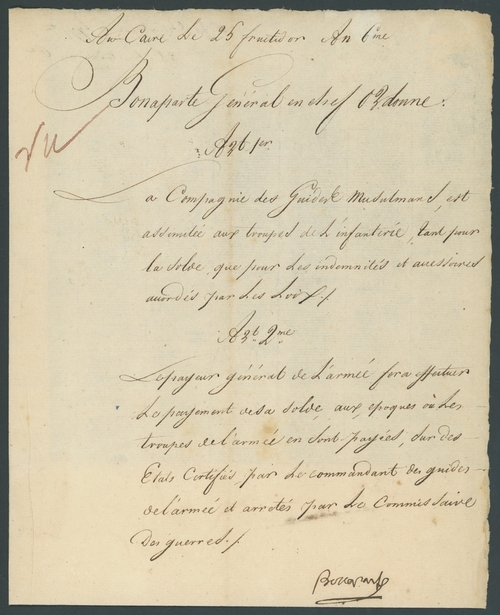 Au Caire Le 25 fructidor An 6me
Bonaparte Général en chef Ordonne.
Vu
Art 1er.
La Compagnie des Guides Musulmans, est
assimilée aux troupes de L'infanterie, tant pour
la solde, que pour Les indemnités et accessoires
accordés par Les Loix./.
Art. 2me
Le payeur général de L'armée fera effectuer
Le payement de sa solde, aux époques où Les
troupes de L'armée en sont payées, sur des
Etats Certifiés par Le commandant des guides
de L'armée et arrêtés par Le Commissaire
Des guerres./.
Bonaparte